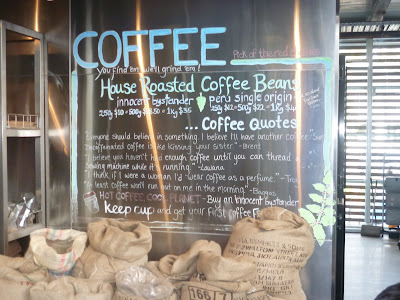 COFFEE
Pick of the red
You find 'em we'll grind 'em!
House Roasted Coffee Beans
innocent bystander peru single origin
250g $10 = 500g = 1Kg $35 250g $12 = 500g $22 = 1Kg
... Coffee Quotes
"Someone should believe in something I believe I'll have another coffee."
"Decaffeinated coffee is like kissing your sister" - Brent
"I believe you haven't had enough coffee until you can thread
a sewing machine while it's running." - Lavana
"I think, if I were a woman, I'd wear coffee as a perfume."
"At least coffee won't run out on me in the morning."
HOT COFFEE, COOL PLANET - Buy an innocent bystander
keep cup and get your first coffee
& SONS
166/7